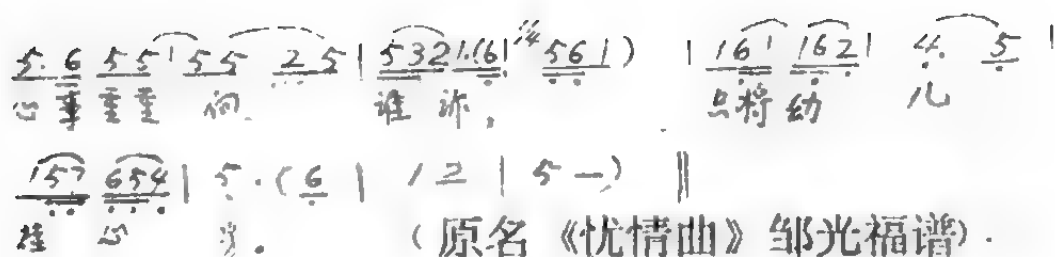 5. 6 5 5 1 5 5 2 5 | 5 3 2 1.(6 1 5 6 1 ) | 1 6 1 1 6 2 | 4. 5 |
心事重重 问 谁 诉, 只将幼 儿
1 5 7 6 5 4 | 5 . ( 6 | 1 2 | 5 —) ‖
挂 心
(原名《忧情曲》邹光福谱).